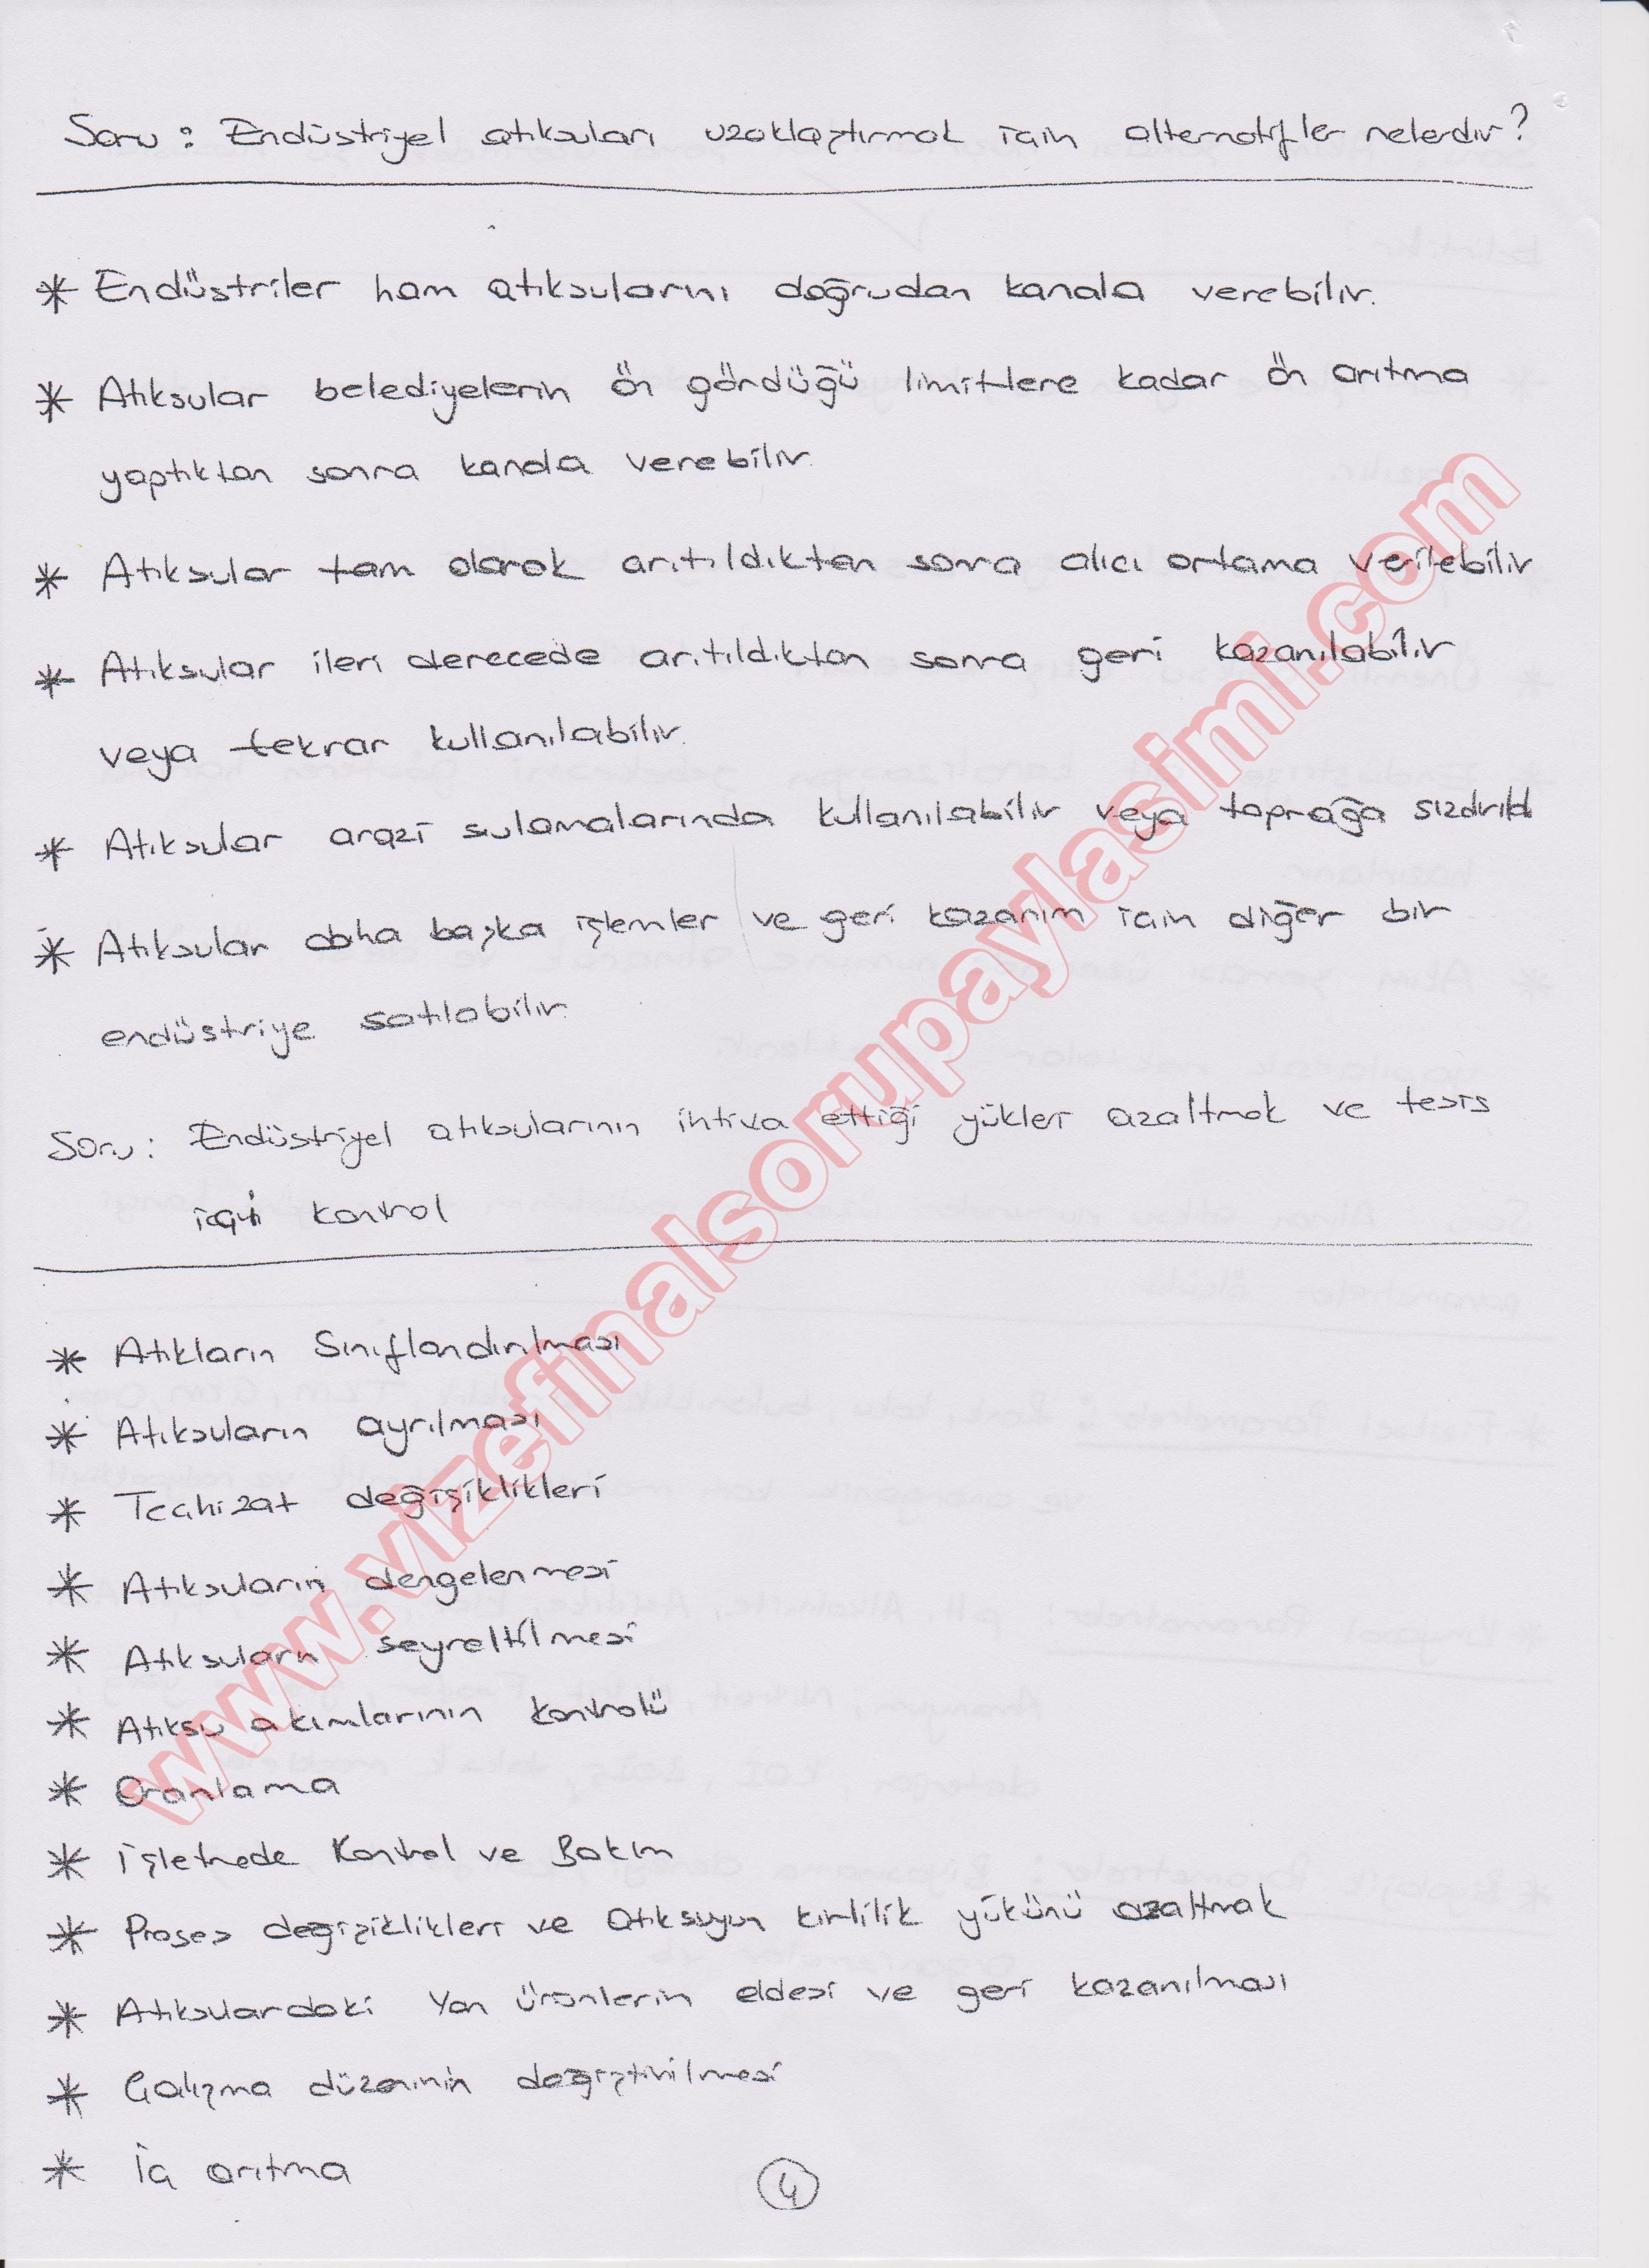 Soru : Endüstriyel atıksuları uzaklaştırmak için alternatifler nelerdir?
* Endüstriler ham atıksularını doğrudan kanala verebilir.
* Atıksular belediyelerin ön gördüğü limitlere kadar ön arıtma
yaptıktan sonra kanala verebilir.
* Atıksular tam olarak arıtıldıktan sonra alıcı ortama verilebilir
* Atıksular ileri derecede arıtıldıktan sonra geri kazanılabilir
veya tekrar kullanılabilir.
* Atıksular arazi sulamalarında kullanılabilir veya toprağa
* Atıksular daha başka işlemler ve geri kazanım için diğer bir
endüstriye satılabilir.
Soru : Endüstriyel atıksularının ihtiva ettiği yükleri azaltmak ve tesis
içi kontrol
* Atıkların Sınıflandırılması
* Atıksuların ayrılması
* Teçhizat değişiklikleri
* Atıksuların dengelenmesi
* Atıksuların seyreltilmesi
* Atıksu akımlarının kontrolü
* Oranlama
* İşletmede Kontrol ve Bakım
* Proses değişiklikleri ve Atıksuyun kirlilik yükünü azaltmak
* Atıksulardaki Yan ürünlerin eldesi ve geri kazanılması
* Çalışma düzeninin değiştirilmesi
* İç arıtma
4
www.vizefinalsorupaylasimi.com